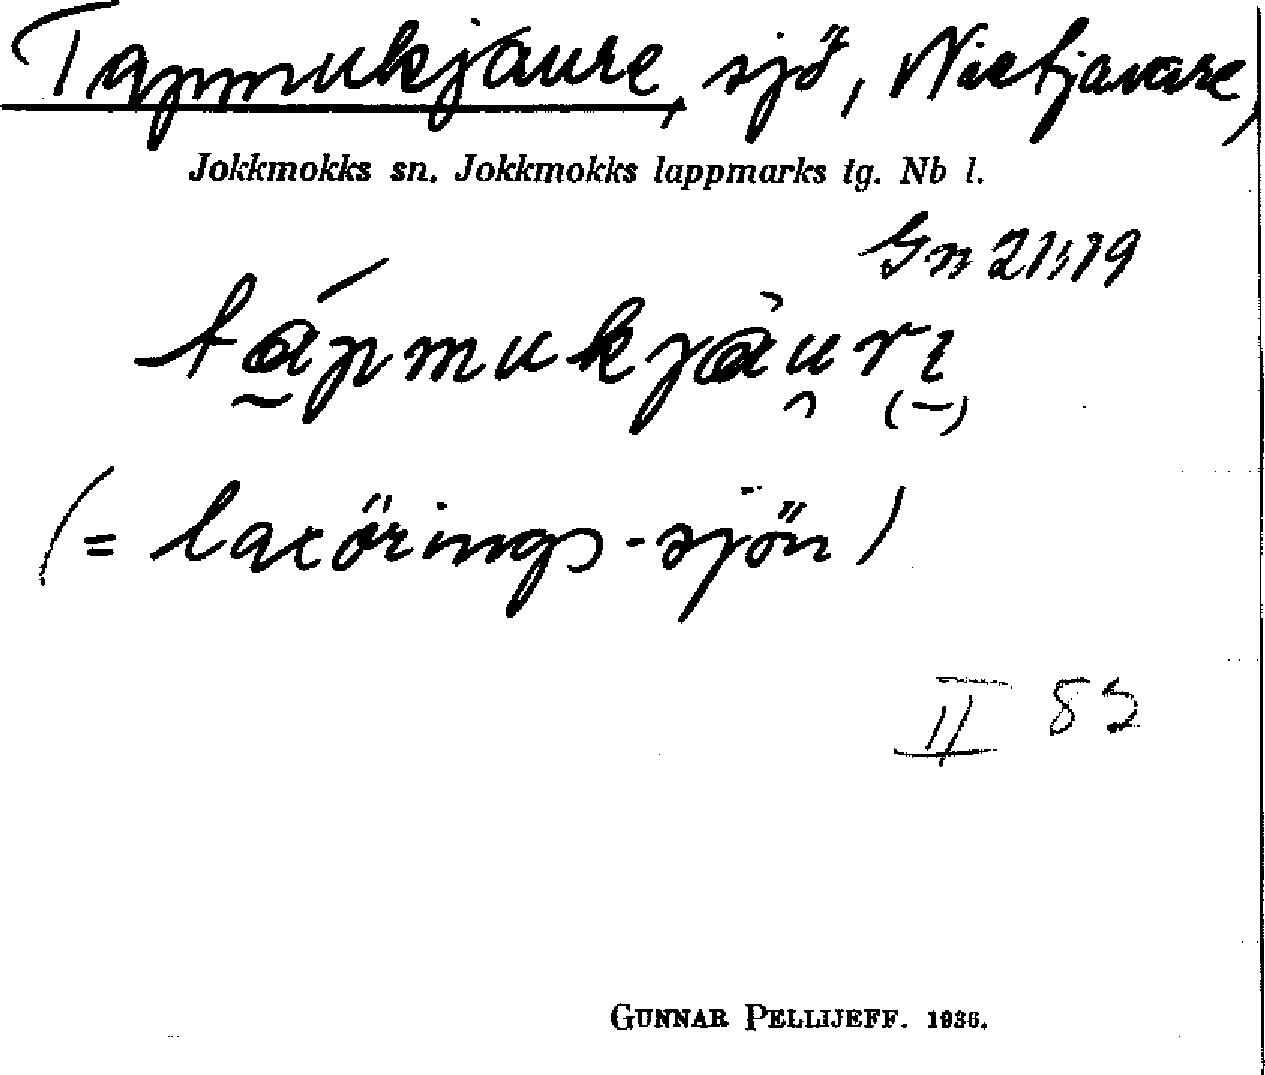 Tapmukjaure, sjö, Nietjavare,
Jokkmokks sn. Jokkmokks lappmarks tg. Nb l.
Gn 21;19
tápmukjàuri
(–)
(= laxörings-sjön)
II 85
GUNNAR PELLIJEFF. 1936.